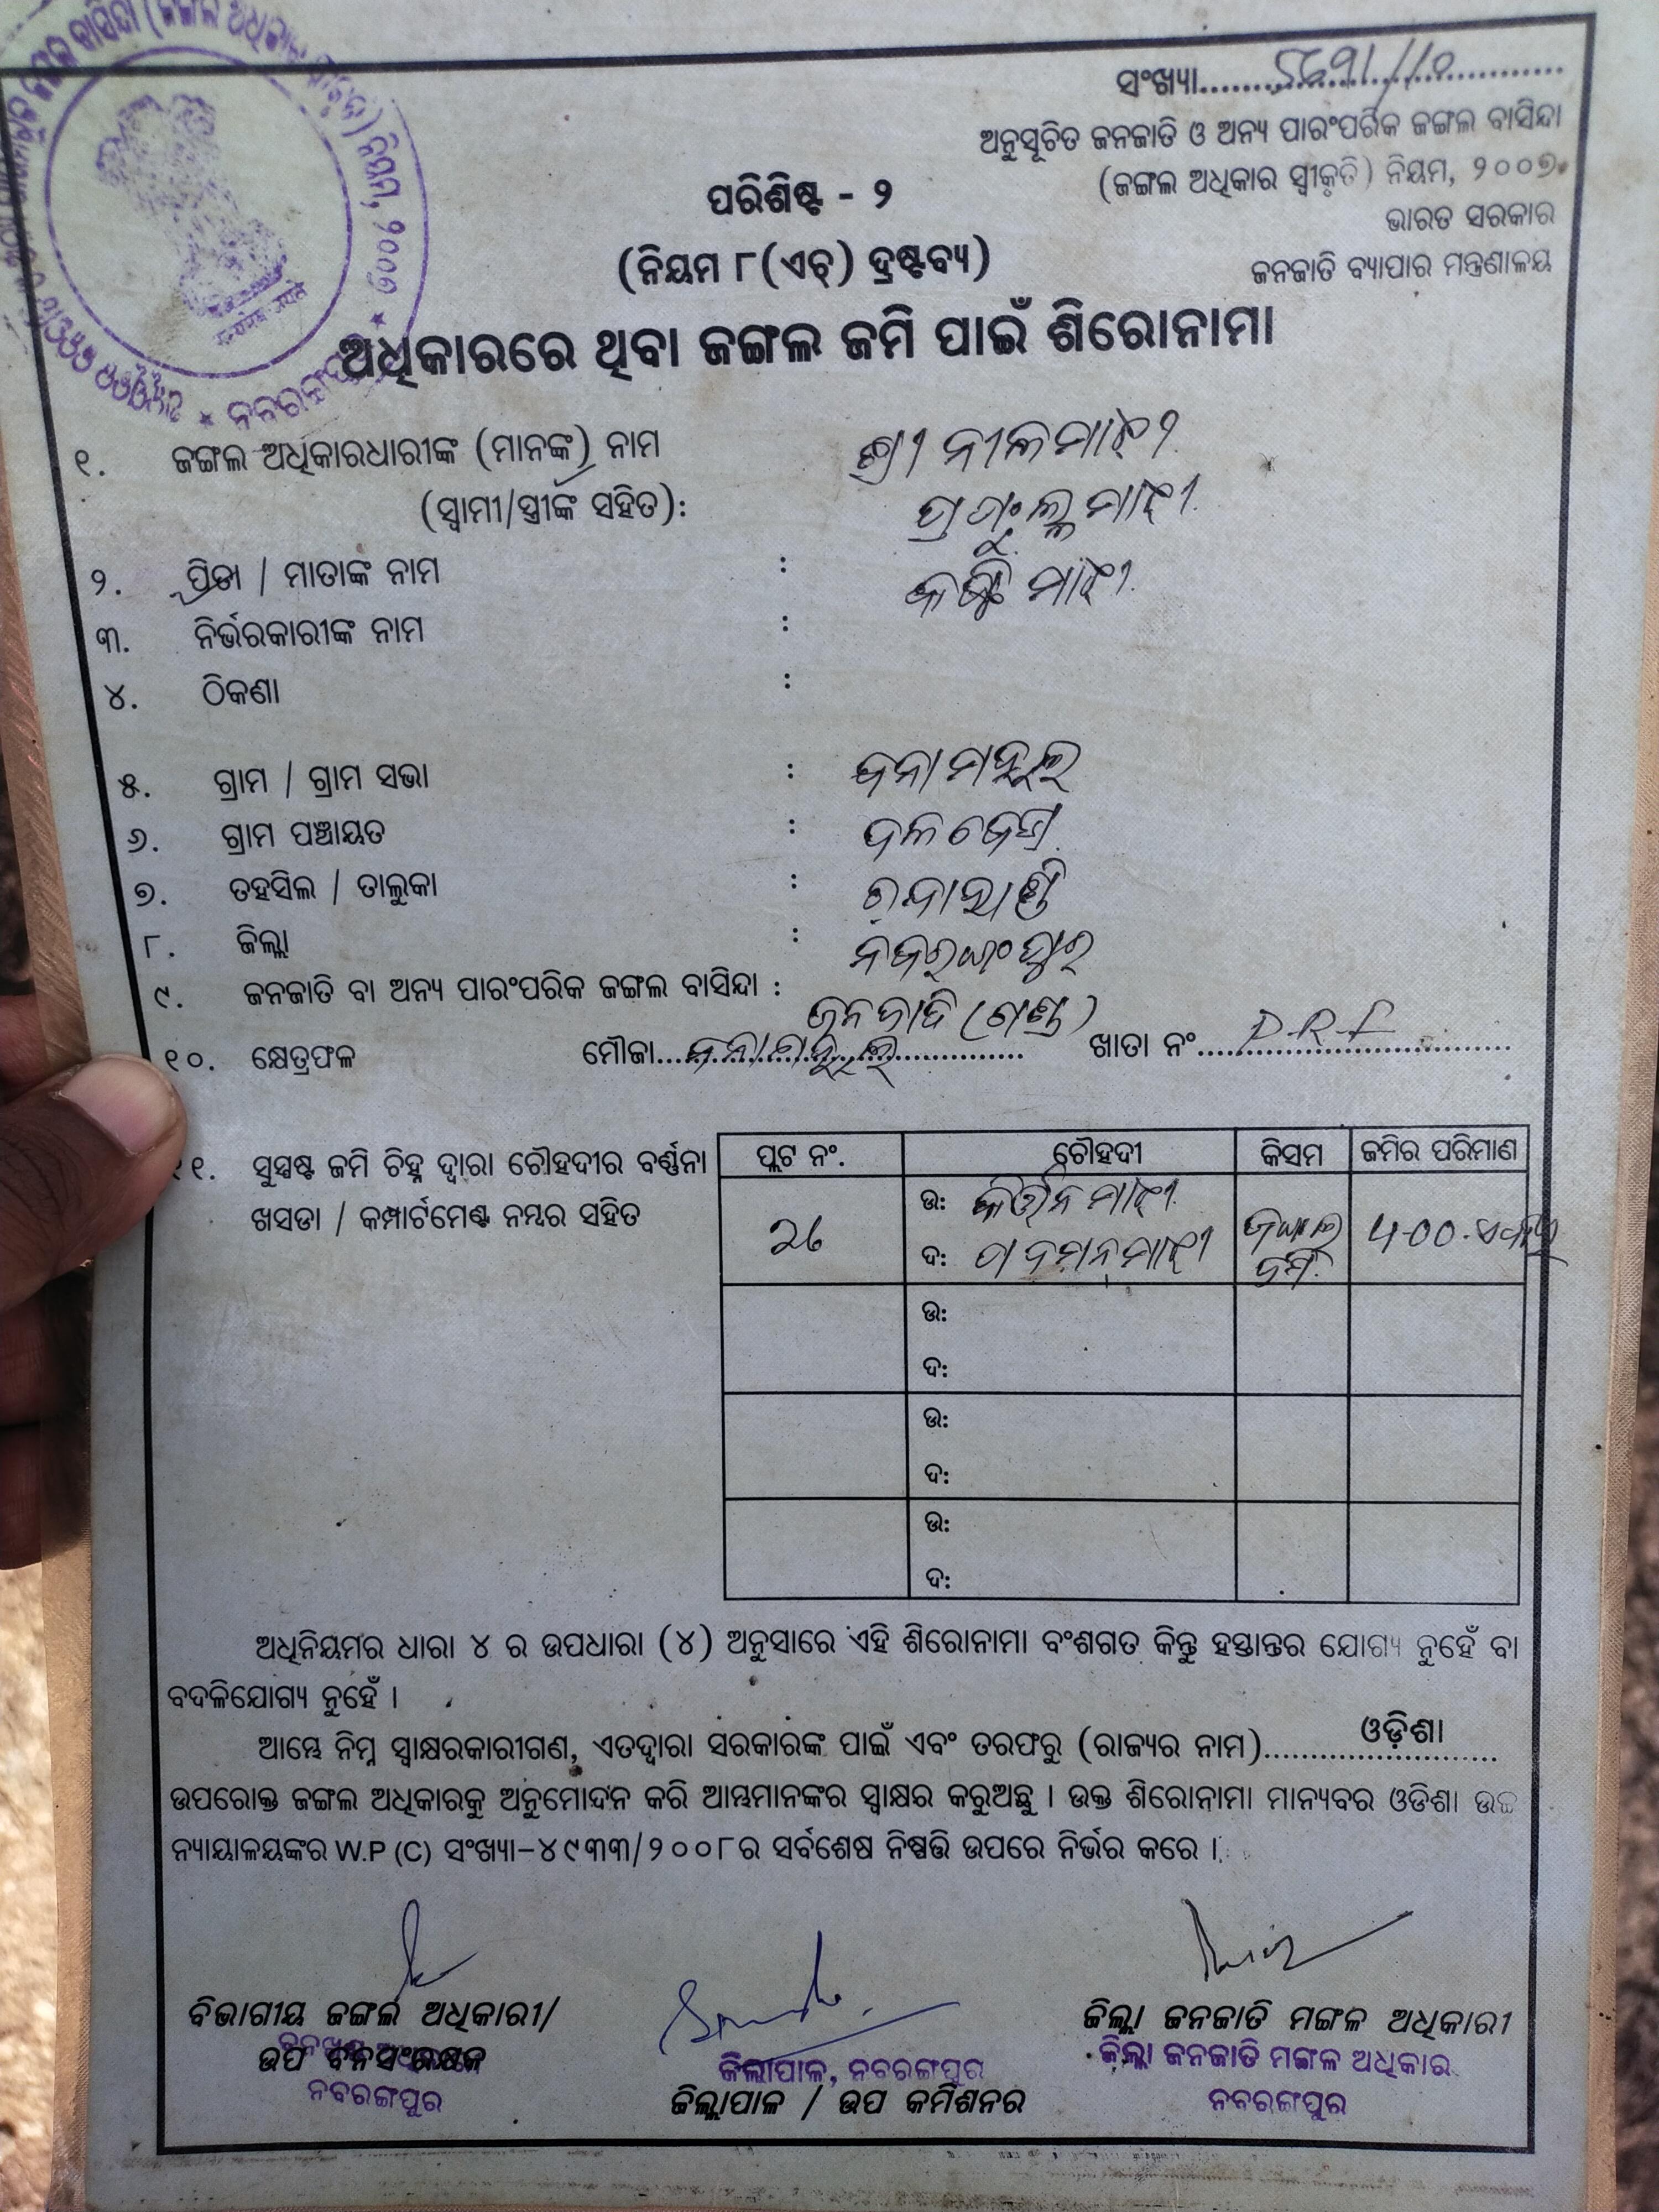 ସଂଖ୍ୟା
ଅନୁସୂଚିତ ଜନଜାତି ଓ ଅନ୍ୟ ପାରଂପରିକ ଜଙ୍ଗଲ ବାସିନ୍ଦା
(ଜଙ୍ଗଲ ଅଧିକାର ସ୍ୱୀକୃତି) ନିୟମ, ୨୦୦୭
ଭାରତ ସରକାର
ଜନଜାତି ବ୍ୟାପାର ମନ୍ତ୍ରଣାଳୟ
ପରିଶିଷ୍ଟ - ୨
(ନିୟମ ୮(ଏଚ୍) ଦ୍ରଷ୍ଟବ୍ୟ)
ଅଧିକାରରେ ଥିବା ଜଙ୍ଗଲ ଜମି ପାଇଁ ଶିରୋନାମା
୧. ଜଙ୍ଗଲ ଅଧିକାରଧାରୀଙ୍କ (ମାନଙ୍କ) ନାମ ଶ୍ରୀ ନୀଳ ମାଝୀ
(ସ୍ୱାମୀ/ସ୍ତ୍ରୀଙ୍କ ସହିତ): ମାଝୀ
୨. ପିତା / ମାତାଙ୍କ ନାମ : ମାଝୀ
୩. ନିର୍ଭରକାରୀଙ୍କ ନାମ :
୪. ଠିକଣା :
୫. ଗ୍ରାମ / ଗ୍ରାମ ସଭା :
୬. ଗ୍ରାମ ପଞ୍ଚାୟତ :
୭. ତହସିଲ / ତାଲୁକା :
୮. ଜିଲ୍ଲା : ନବରଙ୍ଗପୁର
୯. ଜନଜାତି ବା ଅନ୍ୟ ପାରଂପରିକ ଜଙ୍ଗଲ ବାସିନ୍ଦା : ଜନଜାତି (ଗଣ୍ଡ)
୧୦. କ୍ଷେତ୍ରଫଳ ମୌଜା ଖାତା ନଂ D.R.F
୧୧. ସୁସ୍ପଷ୍ଟ ଜମି ଚିହ୍ନ ଦ୍ୱାରା ଚୌହଦୀର ବର୍ଣ୍ଣନା
ଖସଡା / କମ୍ପାର୍ଟମେଣ୍ଟ ନମ୍ବର ସହିତ
ପ୍ଲଟ ନଂ. ଚୌହଦୀ କିସମ ଜମିର ପରିମାଣ
ଉ: କୀର୍ତ୍ତନ ମାଝୀ
ଦ: ମାଝୀ
ଜଙ୍ଗଲ
ଜମି
ଉ:
ଦ:
ଉ:
ଦ:
ଉ:
ଦ:
ଅଧିନିୟମର ଧାରା ୪ ର ଉପଧାରା (୪) ଅନୁସାରେ ଏହି ଶିରୋନାମା ବଂଶଗତ କିନ୍ତୁ ହସ୍ତାନ୍ତର ଯୋଗ୍ୟ ନୁହେଁ ବା
ବଦଳିଯୋଗ୍ୟ ନୁହେଁ ।
ଆମ୍ଭେ ନିମ୍ନ ସ୍ୱାକ୍ଷରକାରୀଗଣ, ଏତଦ୍ୱାରା ସରକାରଙ୍କ ପାଇଁ ଏବଂ ତରଫରୁ (ରାଜ୍ୟର ନାମ) ଓଡ଼ିଶା
ଉପରୋକ୍ତ ଜଙ୍ଗଲ ଅଧିକାରକୁ ଅନୁମୋଦନ କରି ଆମ୍ଭମାନଙ୍କର ସ୍ୱାକ୍ଷର କରୁଅଛୁ । ଉକ୍ତ ଶିରୋନାମା ମାନ୍ୟବର ଓଡିଶା ଉଚ୍ଚ
ନ୍ୟାୟାଳୟଙ୍କର W.P (C) ସଂଖ୍ୟା-୪୯୩୩/୨୦୦୮ର ସର୍ବଶେଷ ନିଷ୍ପତ୍ତି ଉପରେ ନିର୍ଭର କରେ ।
ବିଭାଗୀୟ ଜଙ୍ଗଲ ଅଧିକାରୀ/
ଉପ ବନସଂରକ୍ଷକ
ନବରଙ୍ଗପୁର
ଜିଲ୍ଲାପାଳ, ନବରଙ୍ଗପୁର
ଜିଲ୍ଲାପାଳ / ଉପ କମିଶନର
ଜିଲ୍ଲା ଜନଜାତି ମଙ୍ଗଳ ଅଧିକାରୀ
ଜିଲ୍ଲା ଜନଜାତି ମଙ୍ଗଳ ଅଧିକାର
ନବରଙ୍ଗପୁର